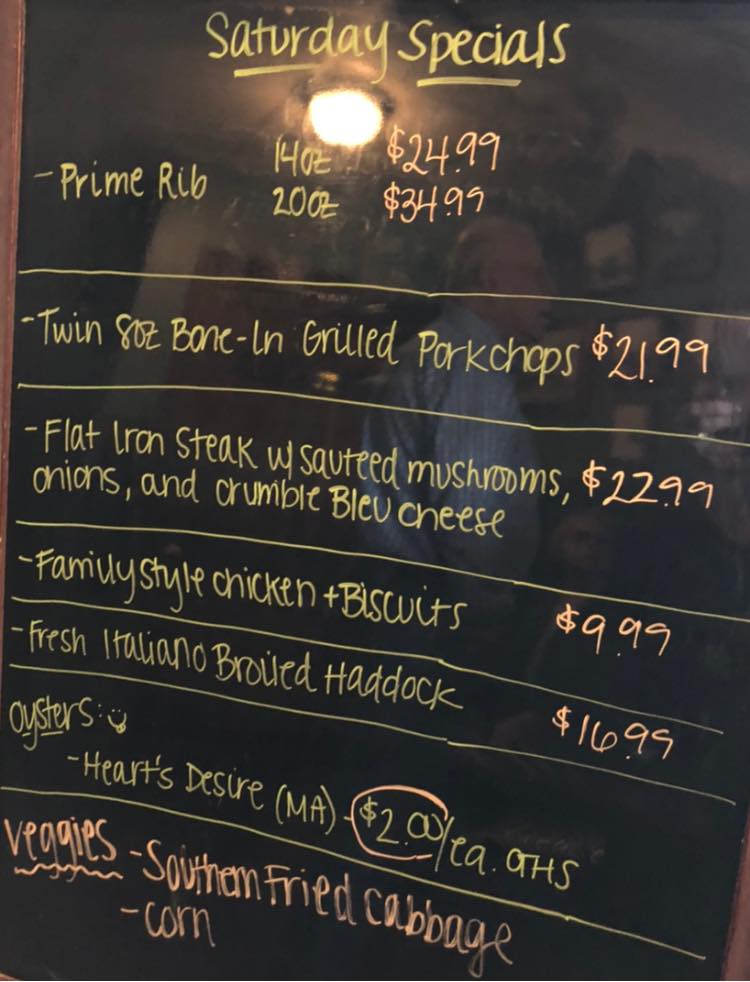 Saturday Specials
14oz $24.99
- Prime Rib
20oz $34.99
- Twin 8oz Bone-In Grilled Porkchops $21.99
- Flat Iron Steak w/ sauteed mushrooms, $22.99
onions, and crumble Bleu cheese
- Family style chicken + Biscuits $9.99
- Fresh Italiano Broiled Haddock $16.99
oysters: :)
- Heart's Desire (MA) - $2.00/ea. OTHS
veggies - Southern Fried cabbage
- corn